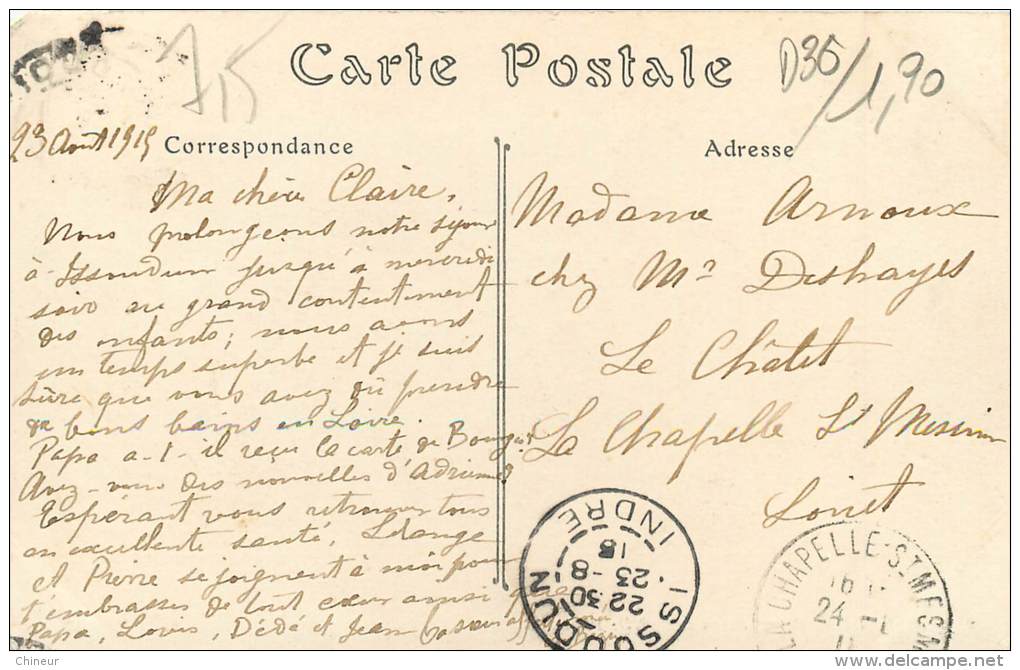 Carte Postale
D35/1,90
75
23 Août 1915
Correspondance
Ma chère Claire,
Nous prolongeons notre séjour
à Issoudun jusqu'à mercredi
soir au grand contentement
des enfants; nous avons
un temps superbe et je suis
sûre que vous avez dû prendre
de bons bains en Loire.
Papa a-t-il reçu la carte de
Avez-vous des nouvelles d'Adrienne?
Espérant vous retrouver tous
en excellente santé, Solange
et Pierre se joignent à moi pour
t'embrasser de tout cœur ainsi que
Papa, Louis, Dédé et Jean
Ta sœur
Adresse
Madame Arnoux
chez Mr Deshayes
Le Châlet
La Chapelle St Mesmin
Loiret
ISSOUDUN
INDRE
22 30
23-8
15
LA CHAPELLE-ST MESM
24
Chineur
delcampe.net